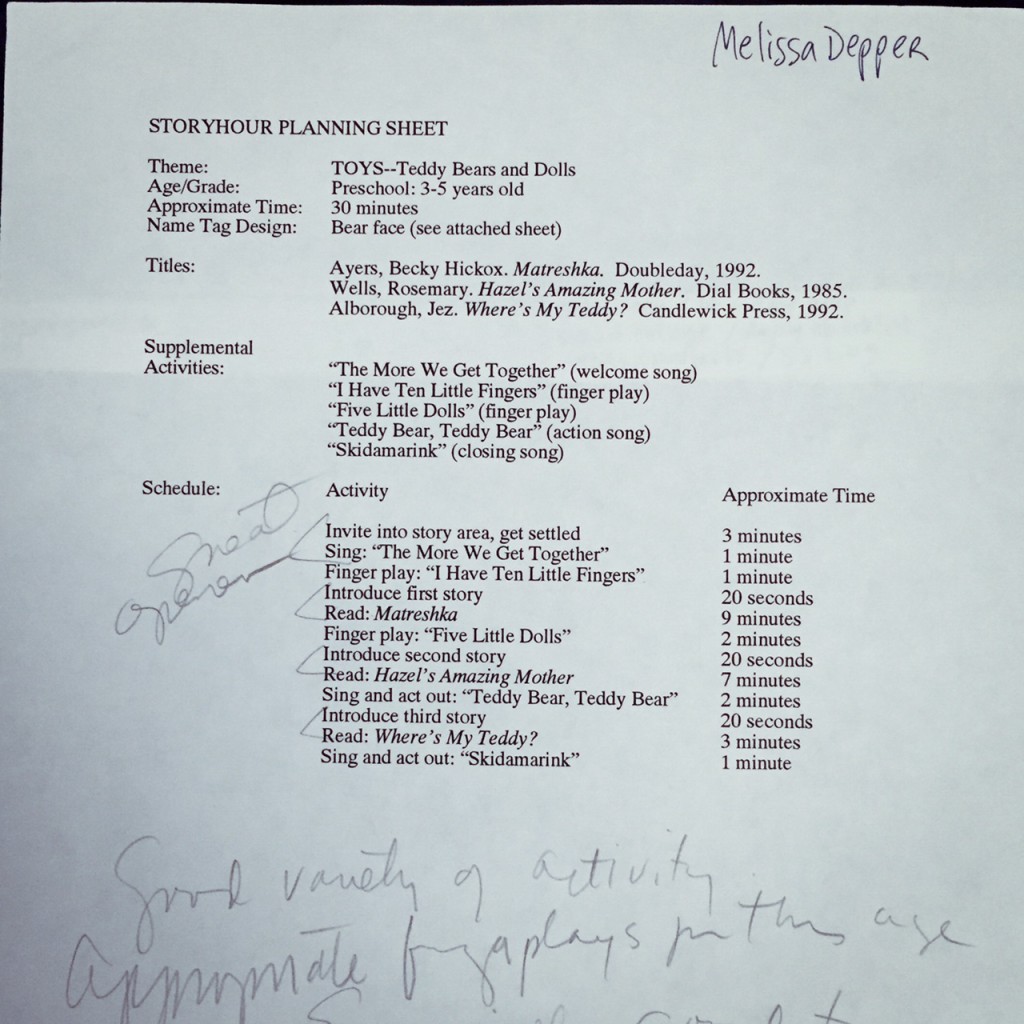 Melissa Depper
STORYHOUR PLANNING SHEET
Theme: TOYS--Teddy Bears and Dolls
Age/Grade: Preschool: 3-5 years old
Approximate Time: 30 minutes
Name Tag Design: Bear face (see attached sheet)
Titles: Ayers, Becky Hickox. Matreshka. Doubleday, 1992.
Wells, Rosemary. Hazel's Amazing Mother. Dial Books, 1985.
Alborough, Jez. Where's My Teddy? Candlewick Press, 1992.
Supplemental
Activities: “The More We Get Together” (welcome song)
“I Have Ten Little Fingers” (finger play)
“Five Little Dolls” (finger play)
“Teddy Bear, Teddy Bear” (action song)
“Skidamarink” (closing song)
Schedule: Activity Approximate Time
Great
opener
Invite into story area, get settled 3 minutes
Sing: “The More We Get Together” 1 minute
Finger play: “I Have Ten Little Fingers” 1 minute
Introduce first story 20 seconds
Read: Matreshka 9 minutes
Finger play: “Five Little Dolls” 2 minutes
Introduce second story 20 seconds
Read: Hazel's Amazing Mother 7 minutes
Sing and act out: “Teddy Bear, Teddy Bear” 2 minutes
Introduce third story 20 seconds
Read: Where's My Teddy? 3 minutes
Sing and act out: “Skidamarink” 1 minute
Good variety of activity
Appropriate fingerplays for this age